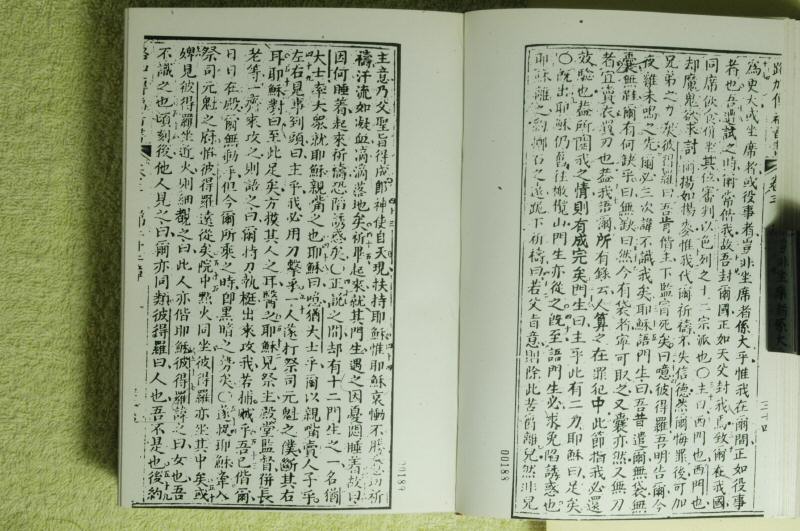 為更大或坐席者或役事者豈非坐席者係大乎惟我在爾間正如役事
者也吾遇試之時爾常偕我故吾封爾國正如天父封我焉致爾在我國
同席飲食併坐其位審判以色列之十二宗派也〇主曰西門也西門也
却魔鬼欲求討爾揚如揚麥惟我代爾祈禱不失信德然爾悔罪後可加
兄弟之力矣彼得羅曰吾肯偕主下監冒死矣曰噫彼得羅吾明告爾今
夜雞未鳴之先爾必三次諱不識我矣耶穌語門生曰吾昔遣爾無袋無
囊無鞋爾有何缺乎曰無缺曰然今有袋者寧可取之又囊亦然又無刀
者宜賣衣買刀也蓋我語爾所有錄云人算之在罪犯中此節指我必還
效驗也蓋所關我之情則有成完矣門生曰主乎此有二刀耶穌曰足矣
〇既出耶穌仍舊往橄欖山門生亦從之既至語門生必求免陷誘惑也
耶穌離之約擲石之遠跪下祈禱曰若父旨意則除此苦爵離兒然非兒
00188
主意乃父聖旨得成即神使自天現扶持耶穌惟耶穌哀慟不勝懇切祈
禱汗流如凝血滴滴落地矣祈畢起來就其門生遇之因憂悶睡著故曰
因何睡著起來祈禱恐陷誘惑矣〇正說之間却有十二門生之一名猶
大士率大眾就耶穌親嘴之也耶穌曰噫猶大士乎爾以親嘴賣人子乎
左右見事到頭曰主乎我必用刀擊乎一人遂打祭司元魁之僕斷其右
耳耶穌對曰至此足矣方摸其人之耳醫之耶穌見祭主殿堂監督併長
老等一齊來攻之則語之曰爾持刀執梃出來攻我若捕賊乎吾已偕爾
日日在殿爾無動手但今爾所乘之時即黑暗之勢矣〇遂捉耶穌牽入
祭司元魁之府恰彼得羅遠從矣院中點火同坐彼得羅亦坐其中矣或
婢見彼得羅坐近火則細觀之曰此人亦偕耶穌彼得羅諱之曰女也吾
不識之也頃刻後他人見之曰爾亦同類彼得羅曰人也吾不是也後約
00189